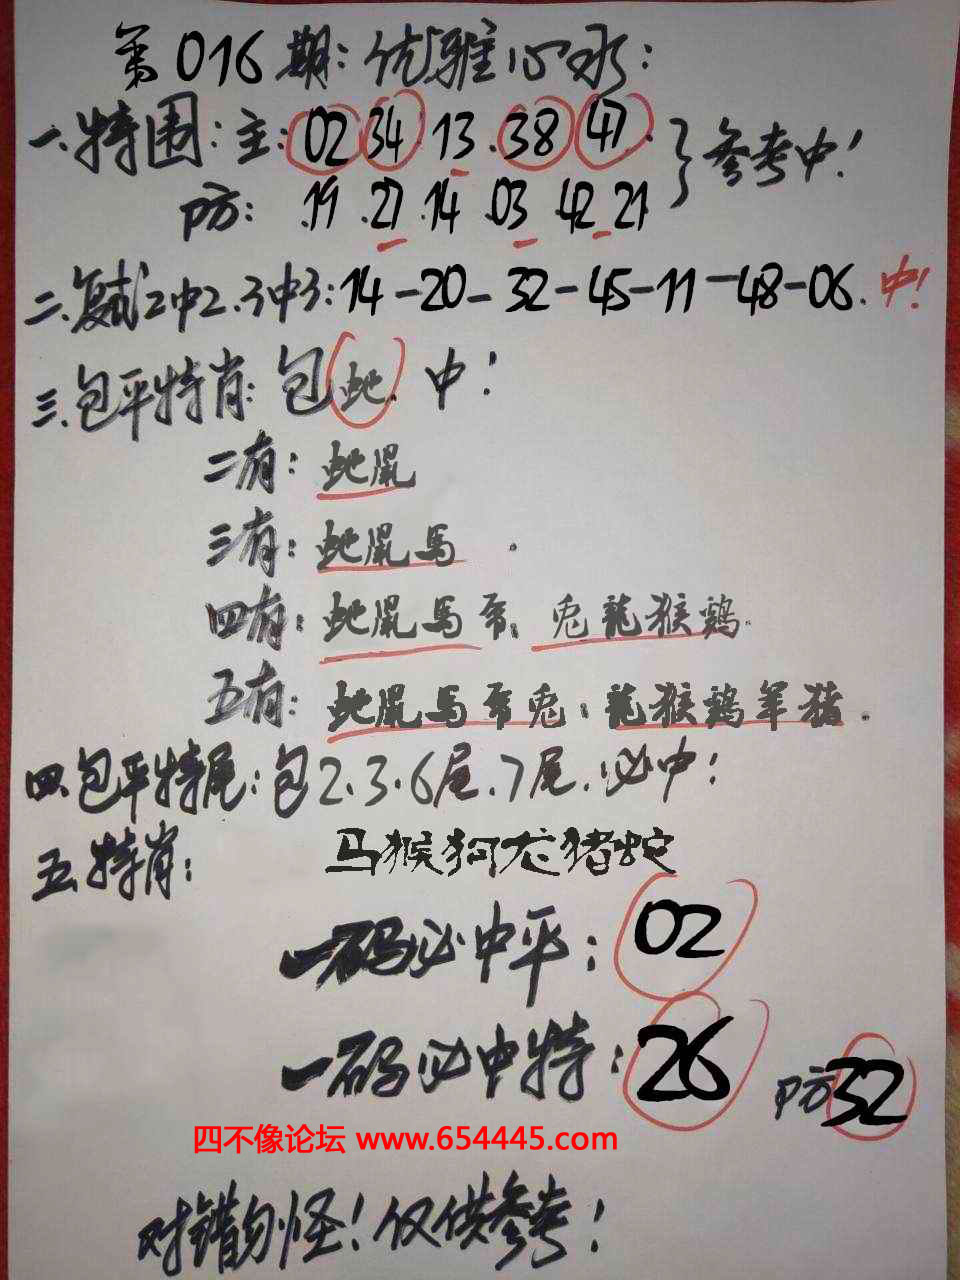 第016期:优雅心水:
一.特围:主:02 34 13 38 47. }参考中!
防: .19 .27 .14 .03 .42 21
二.复式2中2.3中3:14-20-32-45-11-48-06. 中!
三.包平特肖:包蛇.中!
二有:蛇鼠
三有:蛇鼠馬.
四有:蛇鼠馬虎;兔龍猴鷄.
五有:蛇鼠馬虎兔;龍猴鷄羊猪.
四.包平特尾:包2.3.6尾.7尾.必中!
五.特肖: 马猴狗龙猪蛇
一码必中平:02
一码必中特:26 防32
四不像论坛 www.654445.com
对错勿怪!仅供参考!